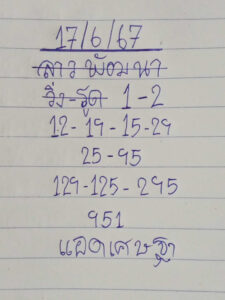 17/6/67
ลาวพัฒนา
วิ่ง-รูด 1-2
12-19-15-29
25-95
129-125-295
951
แอดเศษฐา